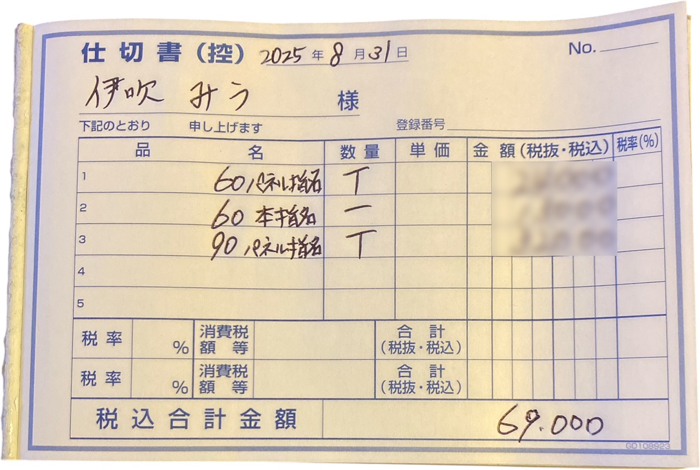 仕切書(控) 2025年8月31日 No.
伊吹 みう 様
下記のとおり 申し上げます 登録番号
品 名 数量 単価 金額(税抜・税込) 税率(%)
1 60パネル指名 T
2 60 本指名 一
3 90パネル指名 T
4
5
税率 % 消費税額等 合計(税抜・税込)
税率 % 消費税額等 合計(税抜・税込)
税込合計金額 69.000
GD108923